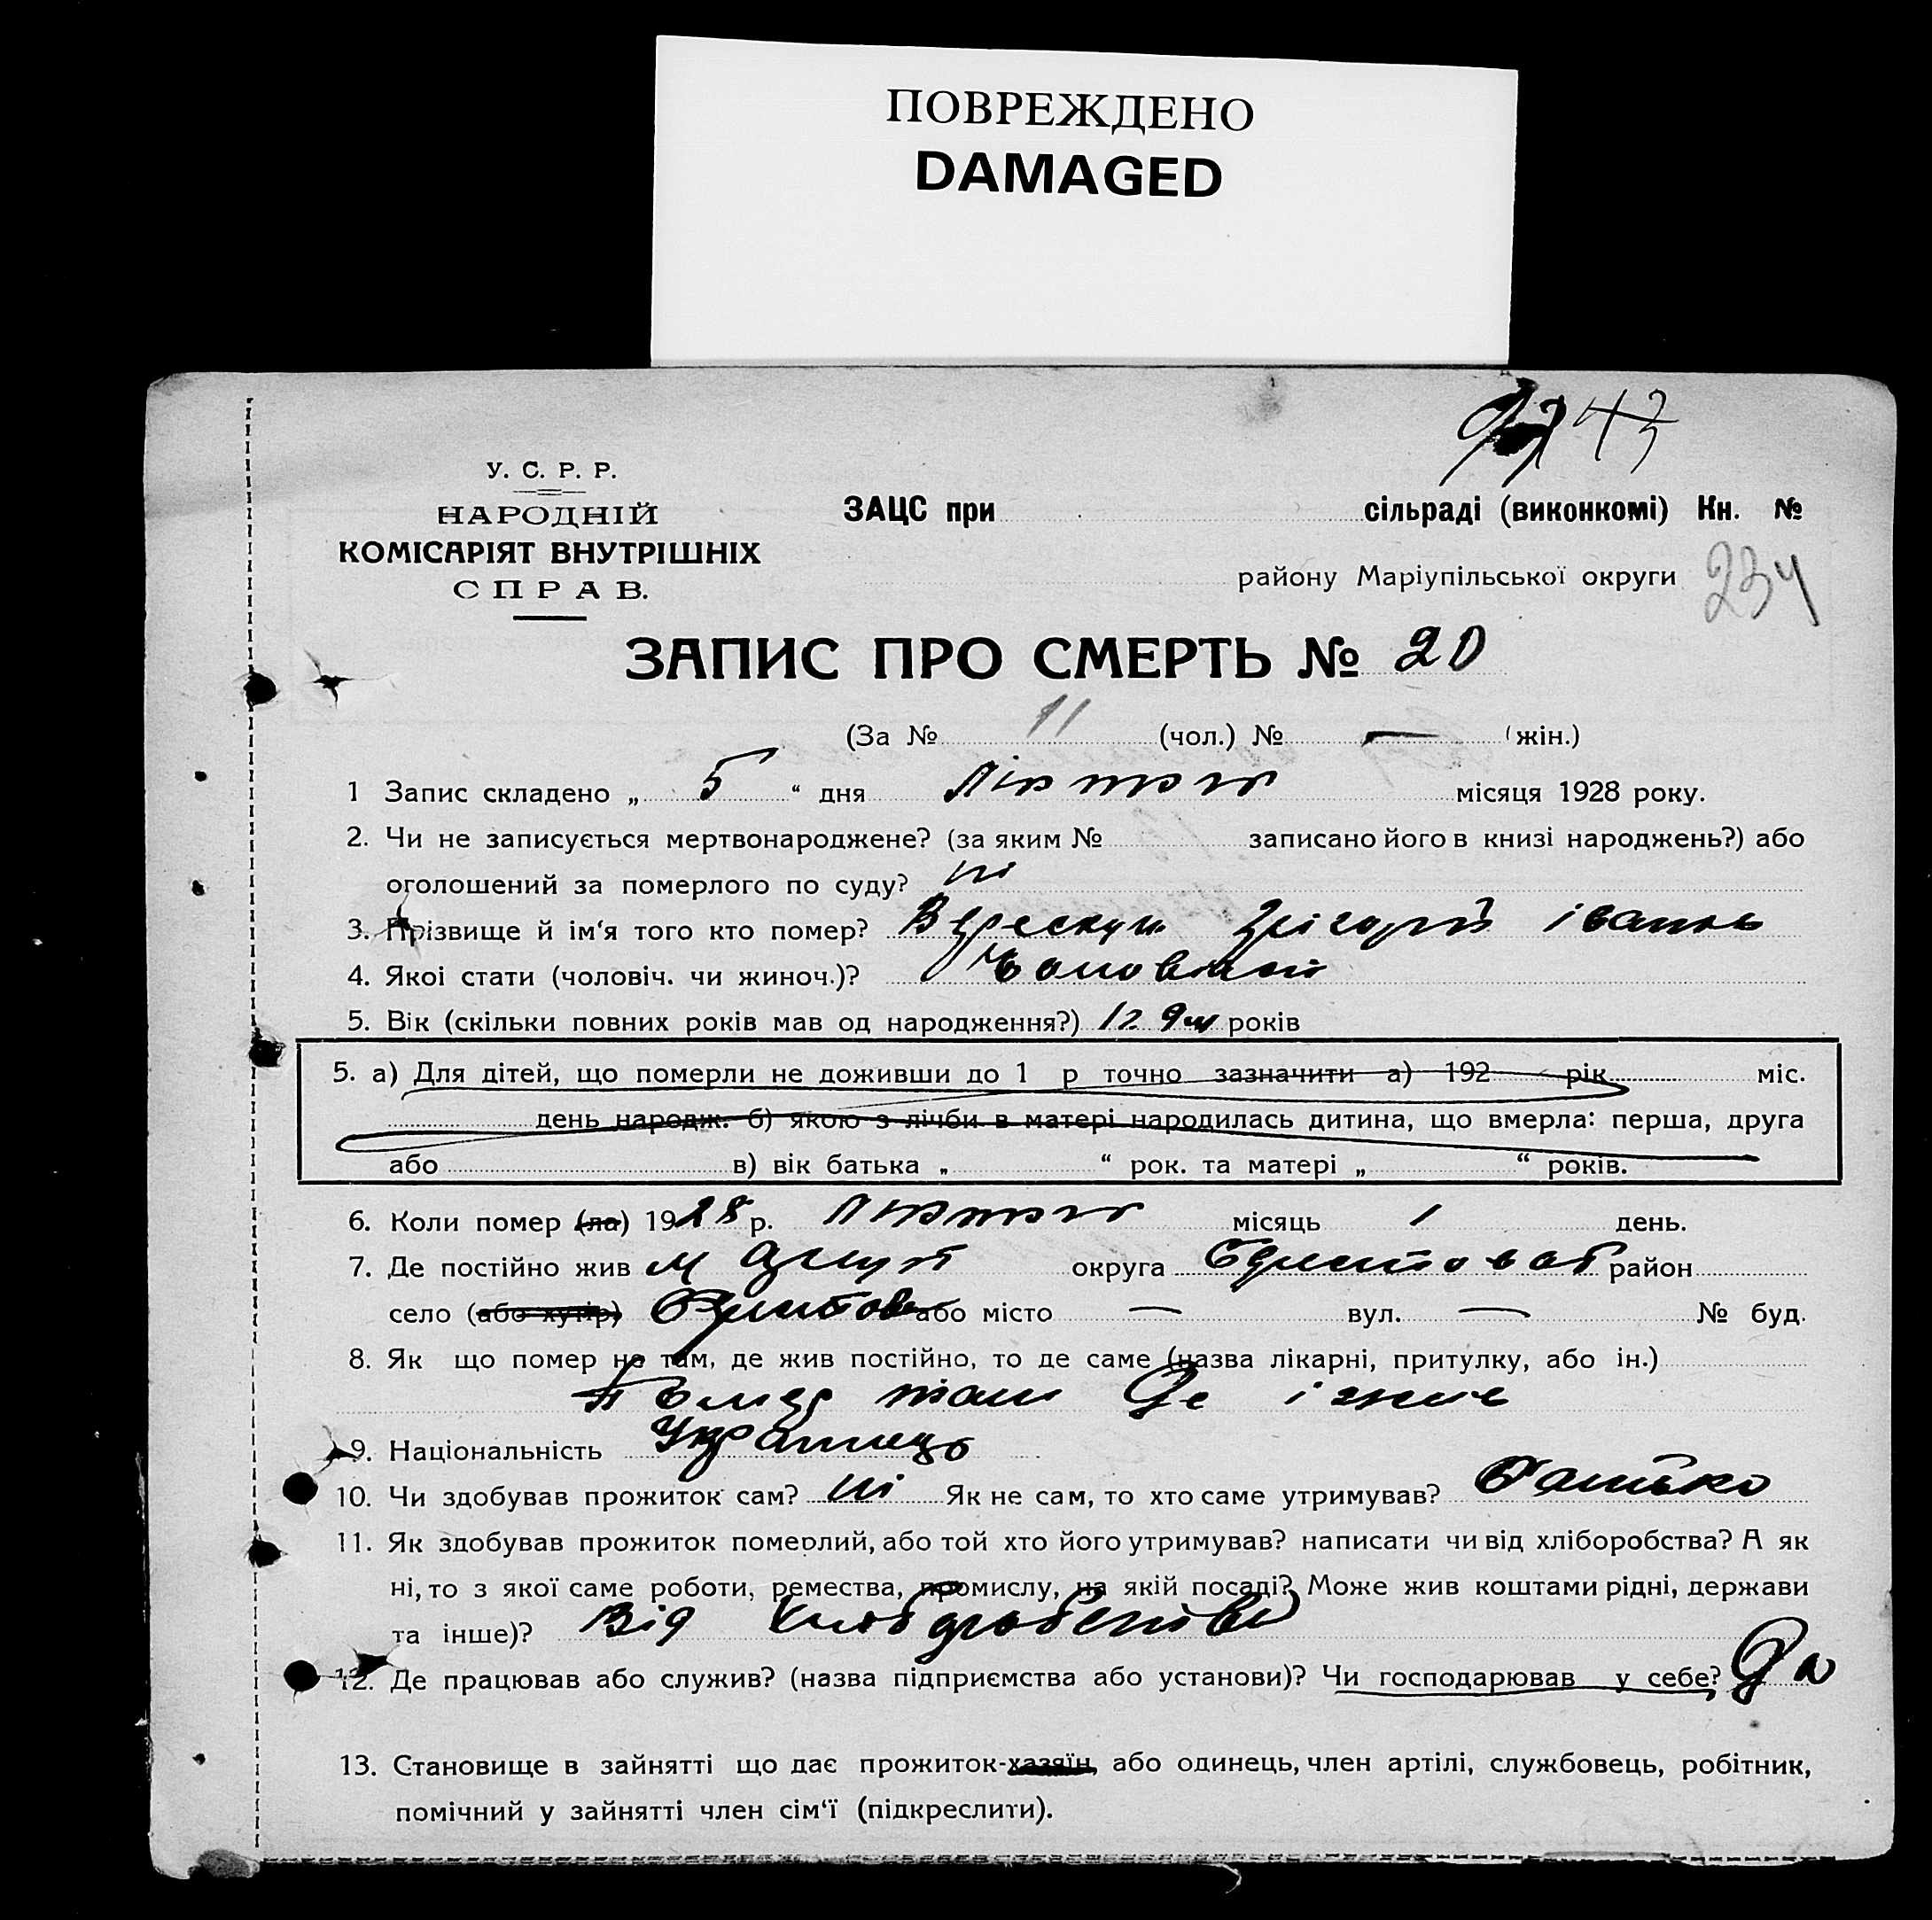 ПОВРЕЖДЕНО
DAMAGED
43
У. С. Р. Р.
НАРОДНІЙ
КОМІСАРІЯТ ВНУТРІШНІХ
СПРАВ.
ЗАЦС при сільраді (виконкомі) Кн. №
району Маріупільської округи 234
ЗАПИС ПРО СМЕРТЬ № 20
(За № 11 (чол.) № — (жін.)
1 Запис складено „ 5 “ дня Лютого місяця 1928 року.
2. Чи не записується мертвонароджене? (за яким № записано його в книзі народжень?) або
оголошений за померлого по суду? ні
3. Прізвище й ім‘я того кто помер? Верескун Грігорій Іванов
4. Якоі стати (чоловіч. чи жиноч.)? Чоловічой
5. Вік (скільки повних років мав од народження?) 1 г. 9 м років
5. а) Для дітей, що померли не доживши до 1 р точно зазначити а) 192 рік міс.
день народж. б) якою з лічби в матері народилась дитина, що вмерла: перша, друга
або в) вік батька „ “ рок. та матері „ “ років.
6. Коли помер (ла) 1928 р. Лютого місяць 1 день.
7. Де постійно жив округа район
село (або хутір) або місто — вул. — № буд.
8. Як що помер не там, де жив постійно, то де саме (назва лікарні, притулку, або ін.)
Помер там Де і жив
9. Національність Українець
10. Чи здобував прожиток сам? ні Як не сам, то хто саме утримував? Батько
11. Як здобував прожиток померлий, або той хто його утримував? написати чи від хліборобства? А як
ні, то з якої саме роботи, ремества, промислу, на якій посаді? Може жив коштами рідні, держави
та інше)? Від хліборобства
12. Де працював або служив? (назва підприємства або установи)? Чи господарював у себе? Да
13. Становище в зайнятті що дає прожиток-хазяїн, або одинець, член артілі, службовець, робітник,
помічний у зайнятті член сім‘ї (підкреслити).